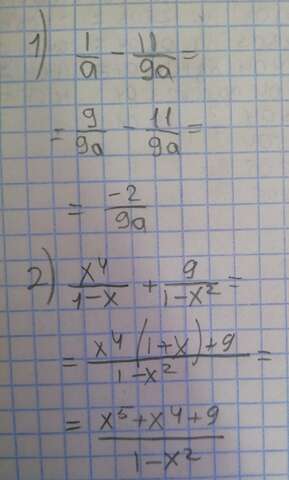 1) 1/a - 11/9a =
= 9/9a - 11/9a =
= -2/9a
2) x⁴/1-x + 9/1-x² =
= x⁴(1+x)+9/1-x² =
= x⁵+x⁴+9/1-x²